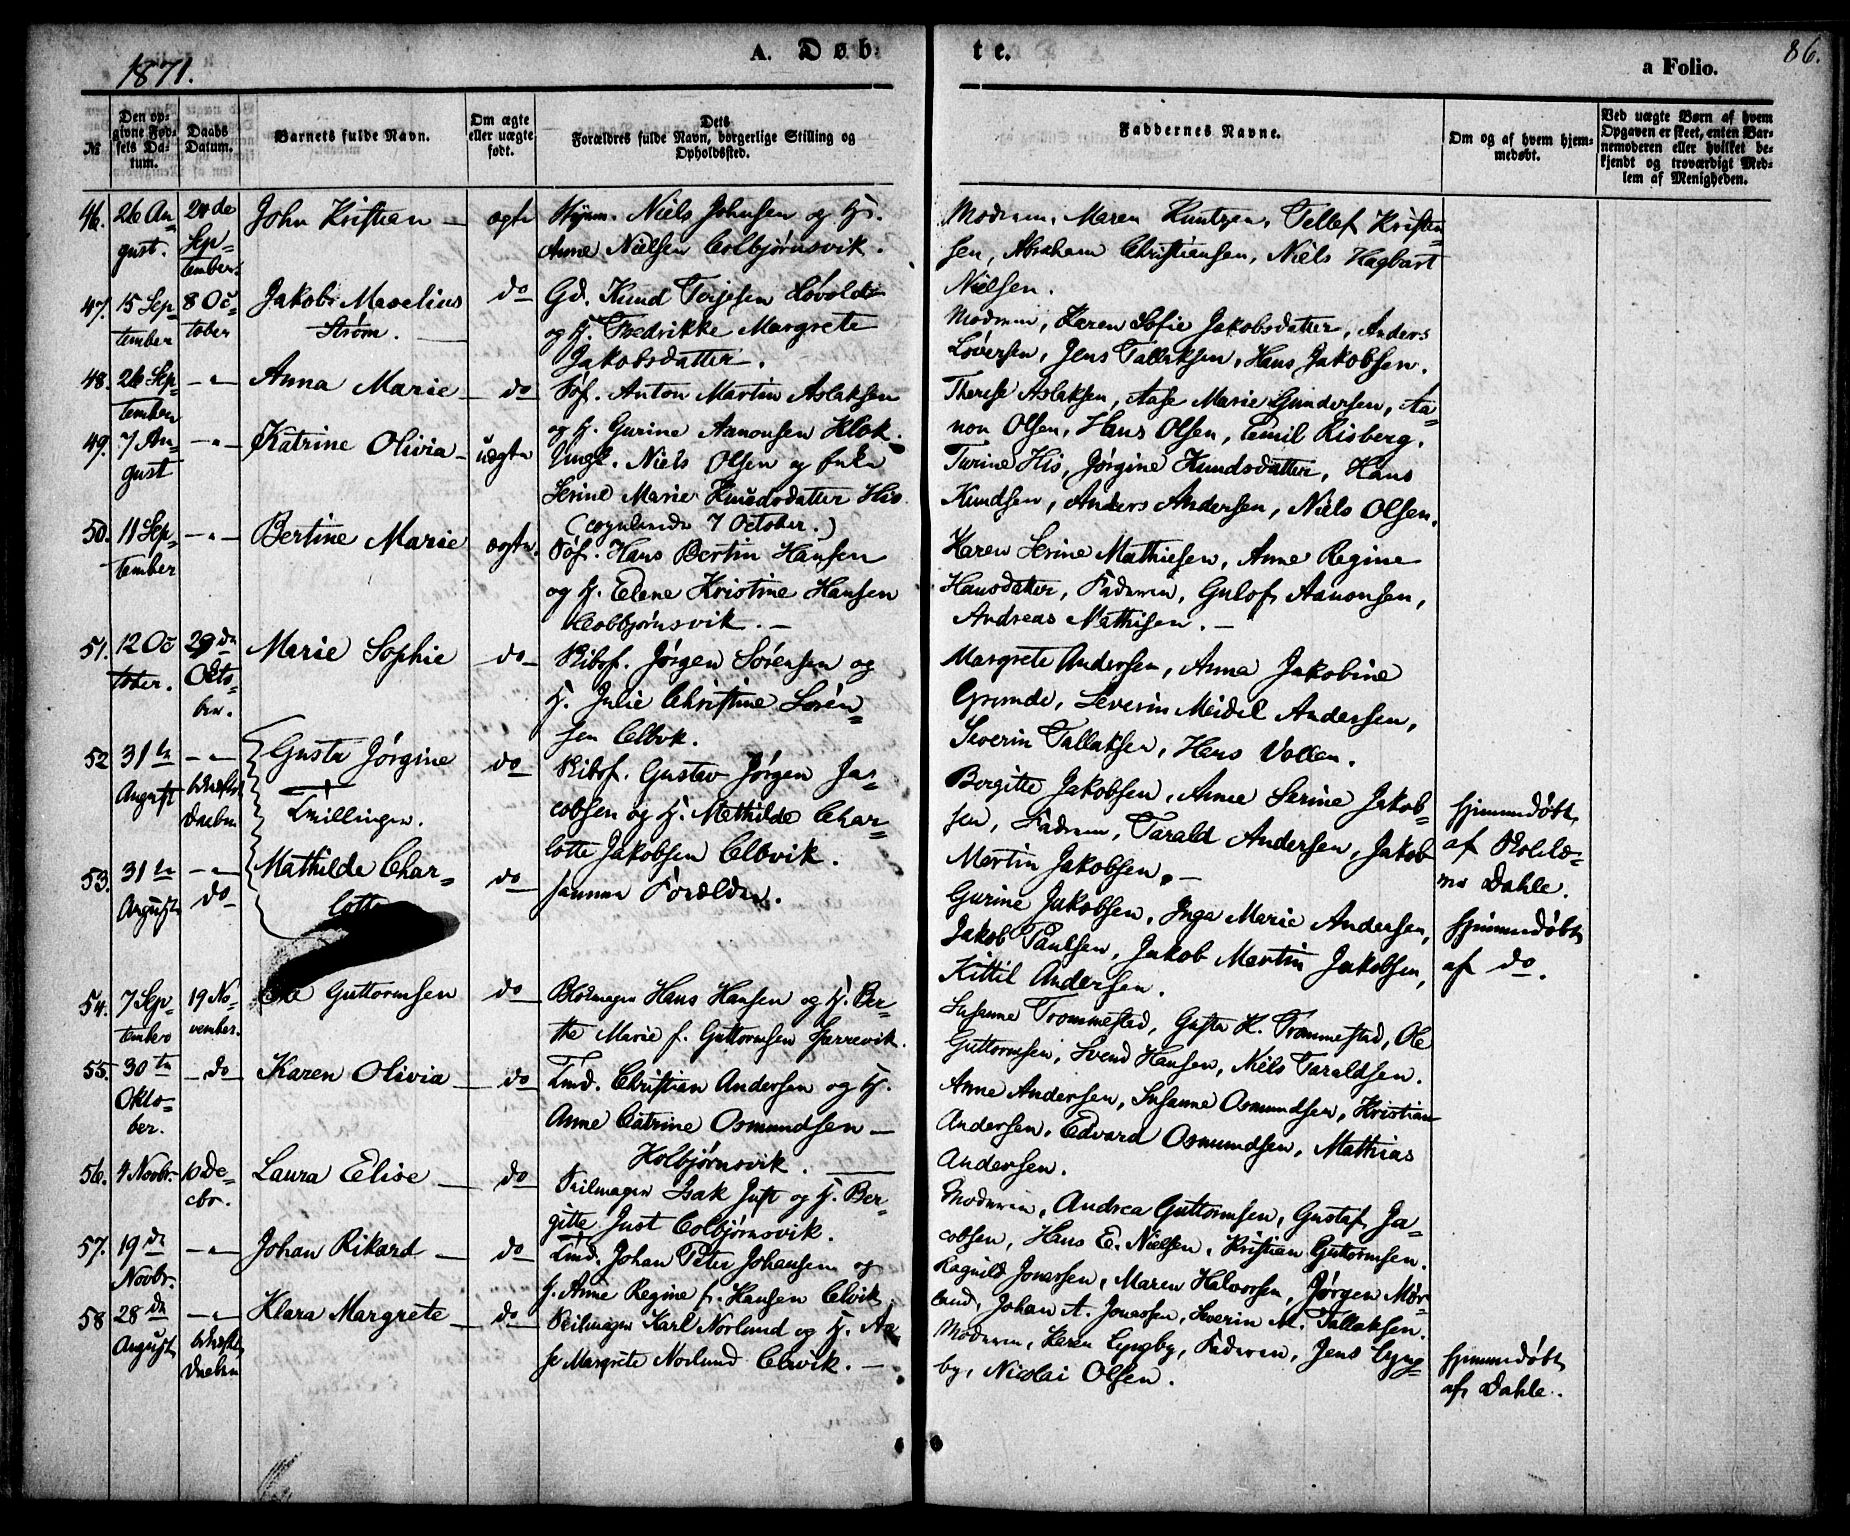 1871.
A. Døb-
te.
86.
a Folio.
№
Den op-
givne Fød-
sels Da-
tum.
Daabs
Datum.
Barnets fulde Navn.
Om ægte
eller uægte
født.
Dets
Forældres fulde Navn, borgerlige Stilling og
Opholdssted.
Faddernes Navne.
Om og af hvem hjem-
medøbt.
Ved uægte Børn af hvem
Opgaven er skeet, enten Bar-
nemoderen eller hvilket be-
kjendt og troværdigt Med-
lem af Menigheden.
46. 26 Au-
gust.
24de
Sep-
tember.
John Kristian
ægte
Niels Johnsen og H.
Anne Nielsen Colbjørnsvik.
Moderen, Maren Knutzen, Tellef Kristen-
sen, Abraham Christiansen, Niels Hagbart
Nielsen.
47. 15 Sep-
tember
8 Oc-
tober
Jakob Maselius
Strøm.
do
Gd. Knud Terjesen Løvold
og H. Fredrikke Margrete
Jakobsdatter.
Moderen, Karen Sofie Jakobsdatter, Anders
Løversen, Jens Tallaksen, Hans Jakobsen.
48. 26 Sep-
tember
-"-
Anna Marie
do
Søf. Anton Martin Aslaksen
og H. Gurine Aanonsen Klok.
Therese Aslaksen, Aase Marie Gundersen, Aa-
non Olsen, Hans Olsen, Emil Risberg.
49. 7 Au-
gust
-"-
Katrine Olivia
uægte
Ungk. Niels Olsen og Enke
Serine Marie Knudsdatter His.
(copulerede 7 October.)
Turine His, Jørgine Knudsdatter, Hans
Knudsen, Anders Andersen, Niels Olsen.
50. 11 Sep-
tember
-"-
Bertine Marie
ægte.
Søf. Hans Bertin Hansen
og H. Elene Kristine Hansen
Colbjørnsvik.
Karen Serine Mathiesen, Anne Regine
Hansdatter, Faderen, Gulof Aanonsen,
Andreas Mathisen.
51. 12 Oc-
tober.
29de
Octo-
ber.
Marie Sophie
do
Skibsf. Jørgen Sørensen og
H. Julie Christine Søren-
sen Elvik.
Margrete Andersen, Anna Jakobine
Gromde, Severin Meidel Andersen,
Severin Tallaksen, Hans Vollen.
52 31te
August
-"-
Gusta Jørgine
Tvillinger.
do
Skibsf. Gustav Jørgen Ja-
cobsen og H. Mathilde Char-
lotte Jakobsen Elvik.
Bergitte Jakobsen, Anne Serine Jakob-
sen, Faderen, Tarald Andersen, Jakob
Martin Jakobsen.
hjemmedøbt
af
Dahle.
53. 31te
August
-"-
do
Mathilde Char-
lotte
do
samme Forældre.
Gurine Jakobsen, Inga Marie Andersen,
Jakob Paulsen, Jakob Martin Jakobsen,
Kittil Andersen.
hjemmedøbt
af do.
54. 7 Sep-
tember
19 No-
vember.
Guttormsen
do
Blokmager Hans Hansen og H. Ber-
the Marie f. Guttormsen Færrevik.
Susanne Trommestad, Gusta K. Trommestad, Ole
Guttormsen, Svend Hansen, Niels Taraldsen.
55. 30te
Okto-
ber.
do
Karen Olivia
do
Tmd. Christian Andersen og H.
Anne Catrine Osmundsen
Kolbjørnsvik.
Anne Andersen, Susanne Osmundsen, Kristian
Andersen, Edvard Osmundsen, Mathias
Andersen.
56. 4 Novbr.
10 De-
cbr.
Laura Elise
do
Seilmager Isak Just og H. Ber-
gitte Just Colbjørnsvik.
Moderen, Andrea Guttormsen, Gustaf Ja-
cobsen, Hans E. Nielsen, Kristian Guttormsen.
57. 19de
Novbr.
-"-
Johan Rikard
do
Tmd. Johan Peter Johansen og
H. Anne Regine f. Hansen Elvik.
Ragnild Jonassen, Maren Halvorsen, Jørgen Mør-
land, Johan A. Jonassen, Severin M. Tallaksen.
58 28de
August
-"-
Klara Margrete
do
Seilmager Karl Norlund og H. Aa-
se Margrete Norlund Elvik.
Moderen, Karen Lyngby, Faderen, Jens Lyng-
by, Nicolai Olsen.
hjemmedøbt
af Dahle.